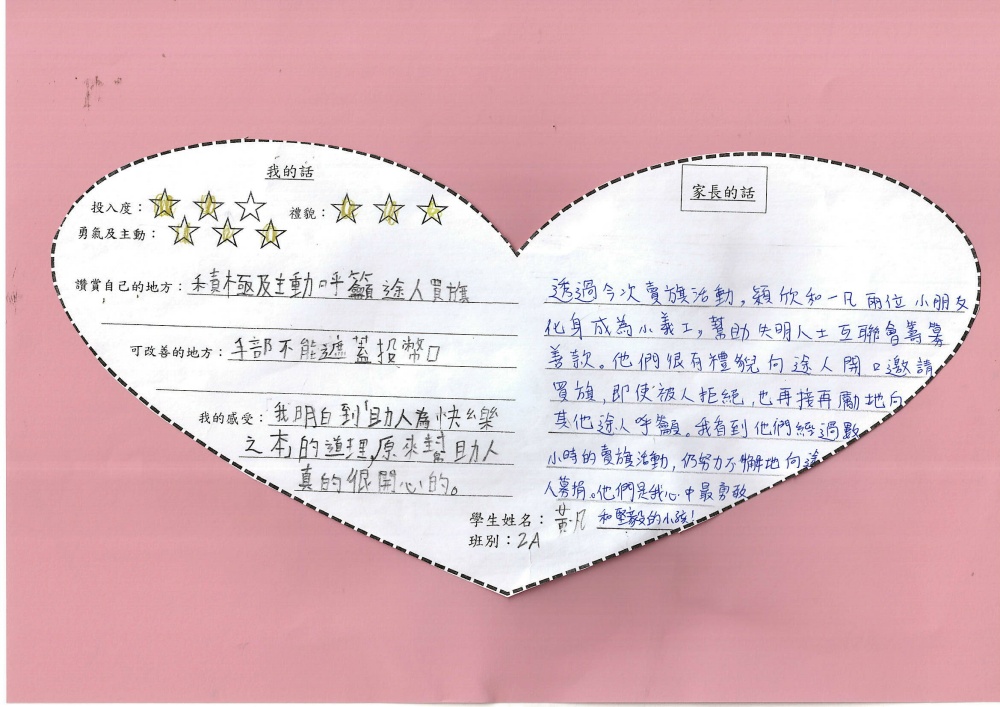 我的話
投入度：
禮貌：
勇氣及主動：
讚賞自己的地方：積極及主動呼籲途人買旗
可改善的地方：手部不能遮蓋投幣口
我的感受：我明白到「助人為快樂
之本」的道理，原來幫助人
真的很開心的。
學生姓名：黃一凡
班別：2A
家長的話
透過今次賣旗活動，穎欣和一凡兩位小朋友
化身成為小義工，幫助失明人士互聯會籌募
善款。他們很有禮貌向途人開口邀請
買旗，即使被人拒絕，也再接再厲地向
其他途人呼籲。我看到他們經過數
小時的賣旗活動，仍努力不懈地向途
人募捐。他們是我心中最勇敢
和堅毅的小孩！